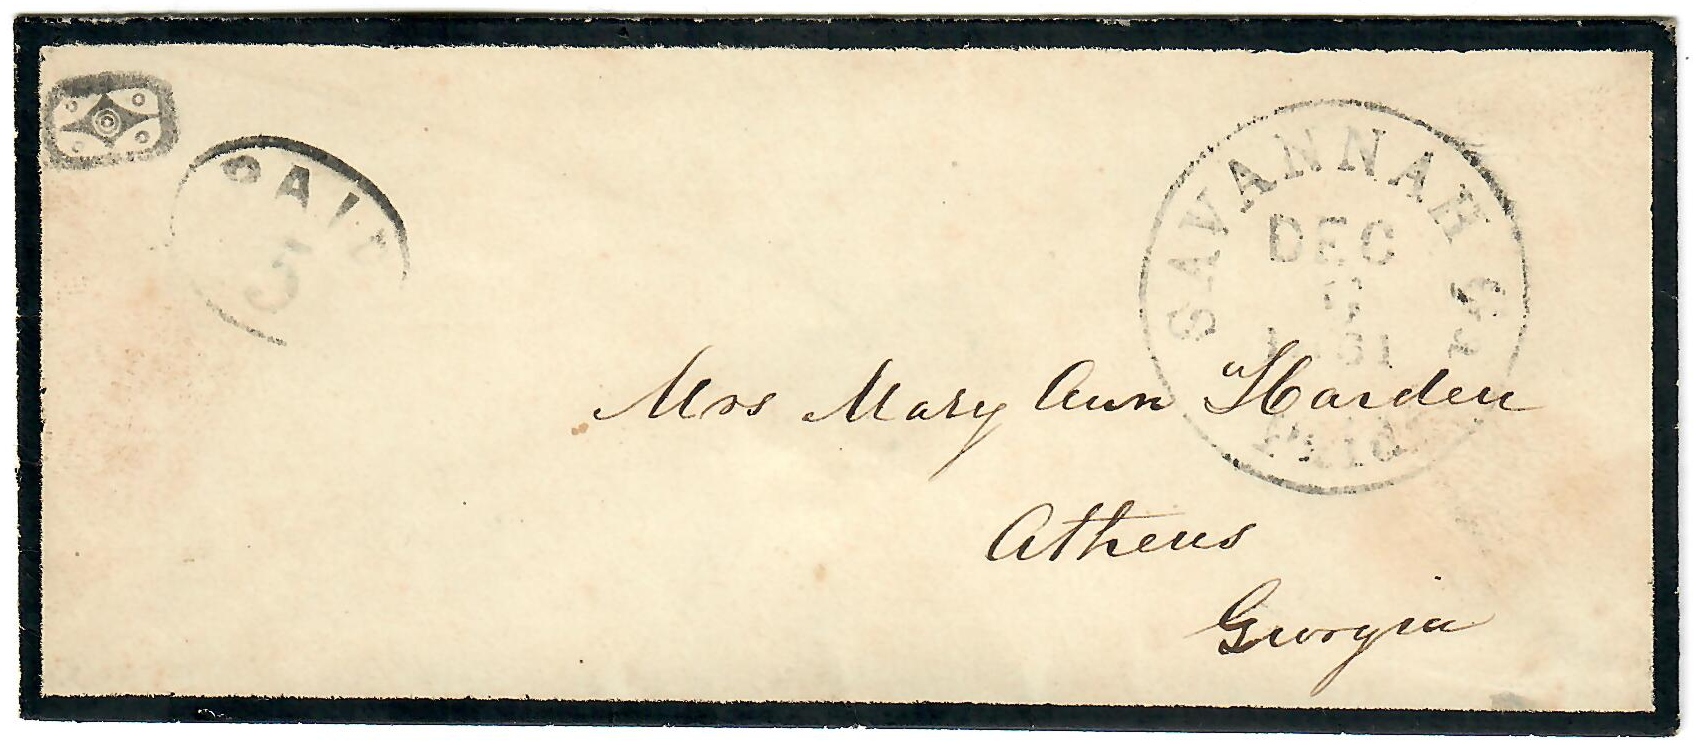 PAID
5
SAVANNAH Ga
DEC
1861
PAID
Mrs Mary Ann Harden
Athens
Georgia